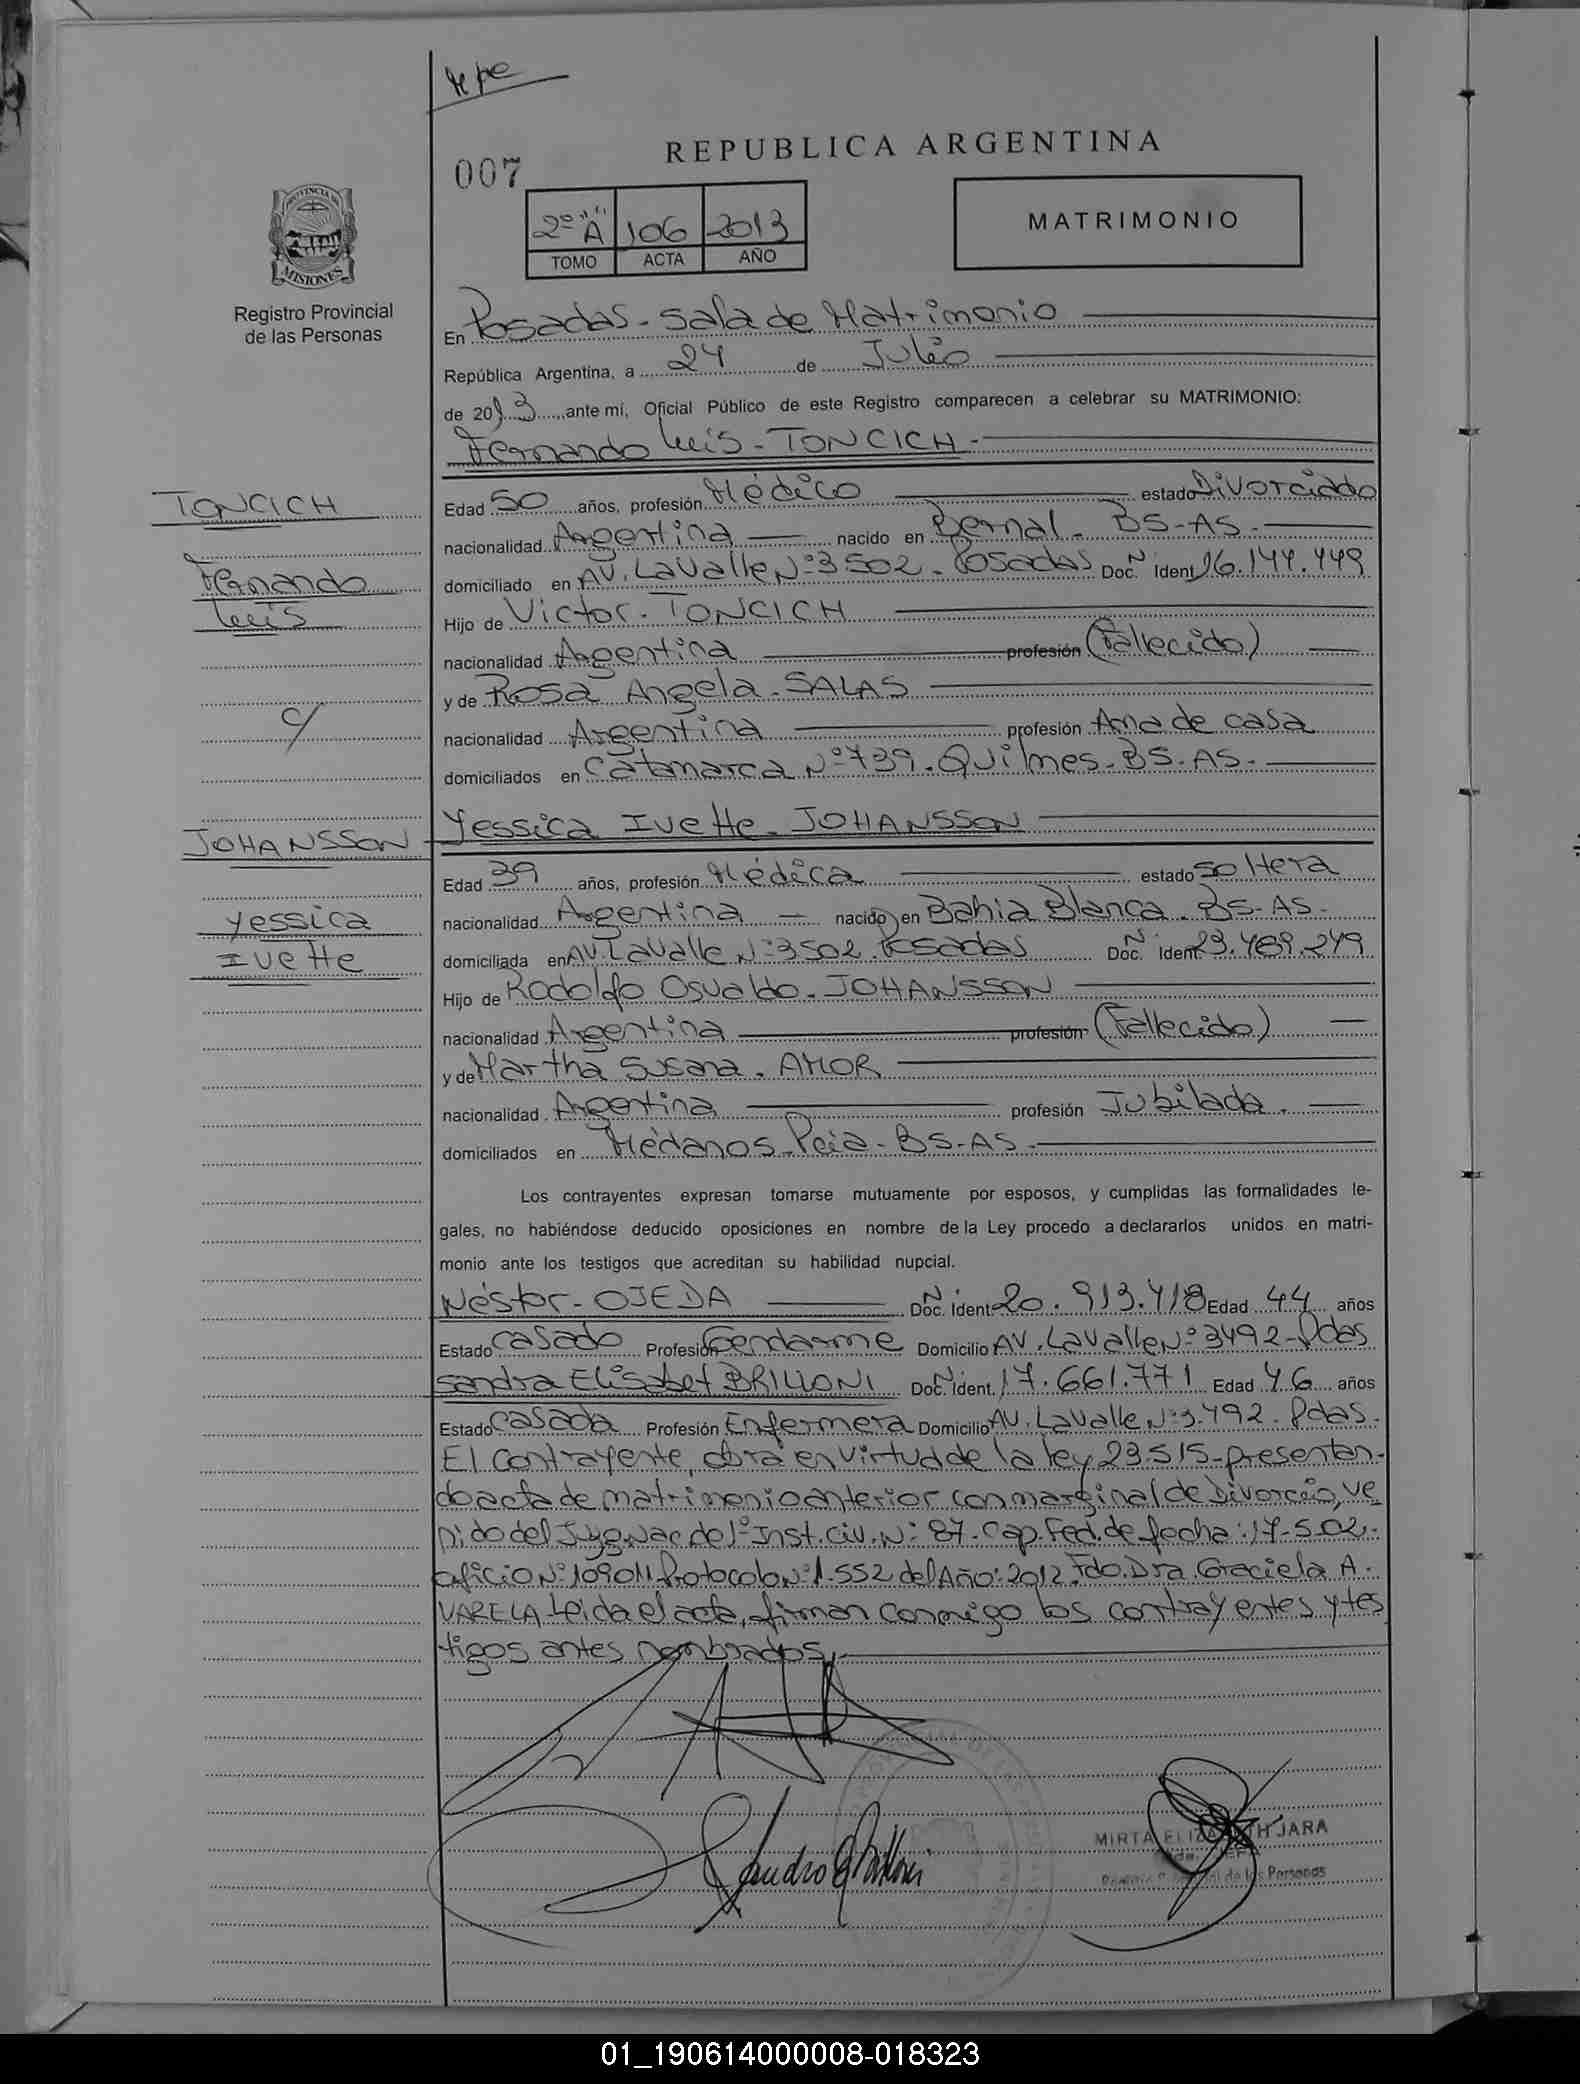 REPUBLICA ARGENTINA
007
2º "A" 106 2013
TOMO ACTA AÑO
MATRIMONIO
PROVINCIA DE
MISIONES
Registro Provincial
de las Personas
En Posadas - Sala de Matrimonio
República Argentina, a 24 de Julio
de 2013 ante mí, Oficial Público de este Registro comparecen a celebrar su MATRIMONIO:
Fernando Luis - TONCICH -
TONCICH
Fernando
Luis
c/
JOHANSSON
Yessica
Ivette
Edad 50 años, profesión Médico estado Divorciado
nacionalidad Argentina nacido en Bernal - BS-AS-
domiciliado en AV. Lavalle Nº 3502 - Posadas Doc. N Ident 16.144.449
Hijo de Victor - TONCICH
nacionalidad Argentina profesión (Fallecido)
y de Rosa Angela - SALAS
nacionalidad Argentina profesión Ama de casa
domiciliados en Catamarca Nº 739 - Quilmes - BS-AS-
Yessica Ivette - JOHANSSON
Edad 39 años, profesión Médica estado Soltera
nacionalidad Argentina nacido en Bahia Blanca - BS-AS-
domiciliada en AV. Lavalle Nº 3502 - Posadas Doc. N Ident 23.489.249
Hijo de Rodolfo Osvaldo - JOHANSSON
nacionalidad Argentina profesión (Fallecido)
y de Martha Susana - AMOR
nacionalidad Argentina profesión Jubilada -
domiciliados en Médanos - Pcia - BS-AS-
Los contrayentes expresan tomarse mutuamente por esposos, y cumplidas las formalidades le-
gales, no habiéndose deducido oposiciones en nombre de la Ley procedo a declararlos unidos en matri-
monio ante los testigos que acreditan su habilidad nupcial.
Néstor - OJEDA Doc. N Ident 20.913.418 Edad 44 años
Estado Casado Profesión Gendarme Domicilio AV. Lavalle Nº 3492 - Pdas
Sandra Elisabet BRILLONI Doc. N Ident. 17.661.771 Edad 46 años
Estado Casada Profesión Enfermera Domicilio AV. Lavalle Nº 3.492 - Pdas -
El contrayente, obra en virtud de la ley 23.515 - presentan-
do acta de matrimonio anterior con marginal de Divorcio, ve
nido del Juzg. Nac de 1º Inst. Civ. Nº 87 - Cap. Fed. de fecha: 17-5-02 -
oficio Nº 109011 Protocolo Nº 1.552 del Año: 2012. Fdo. Dra. Graciela A.
VARELA. Leida el acta, firman conmigo los contrayentes y tes
tigos antes nombrados.
MIRTA ELIZABETH JARA
de las Personas
01_190614000008-018323